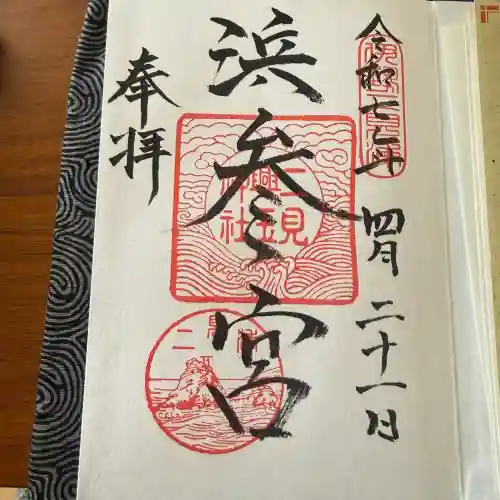 令和七年 四月 二十一日
浜参宮
二見
興玉
神社
奉拝